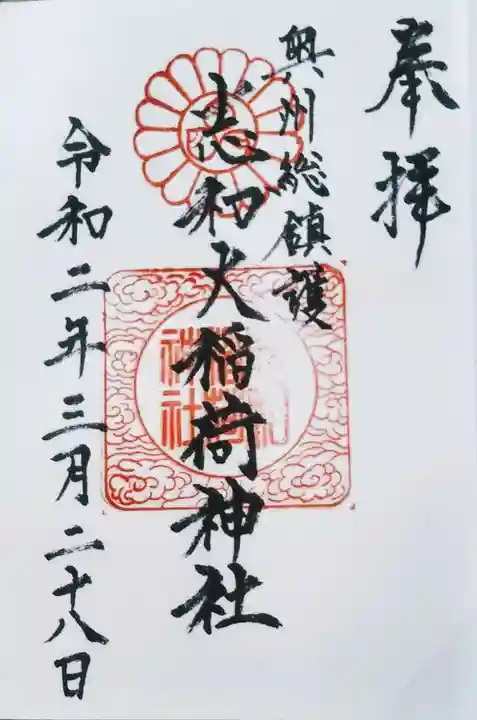 奉拝
奥州総鎮護
志和稲荷神社
令和二年三月二十八日